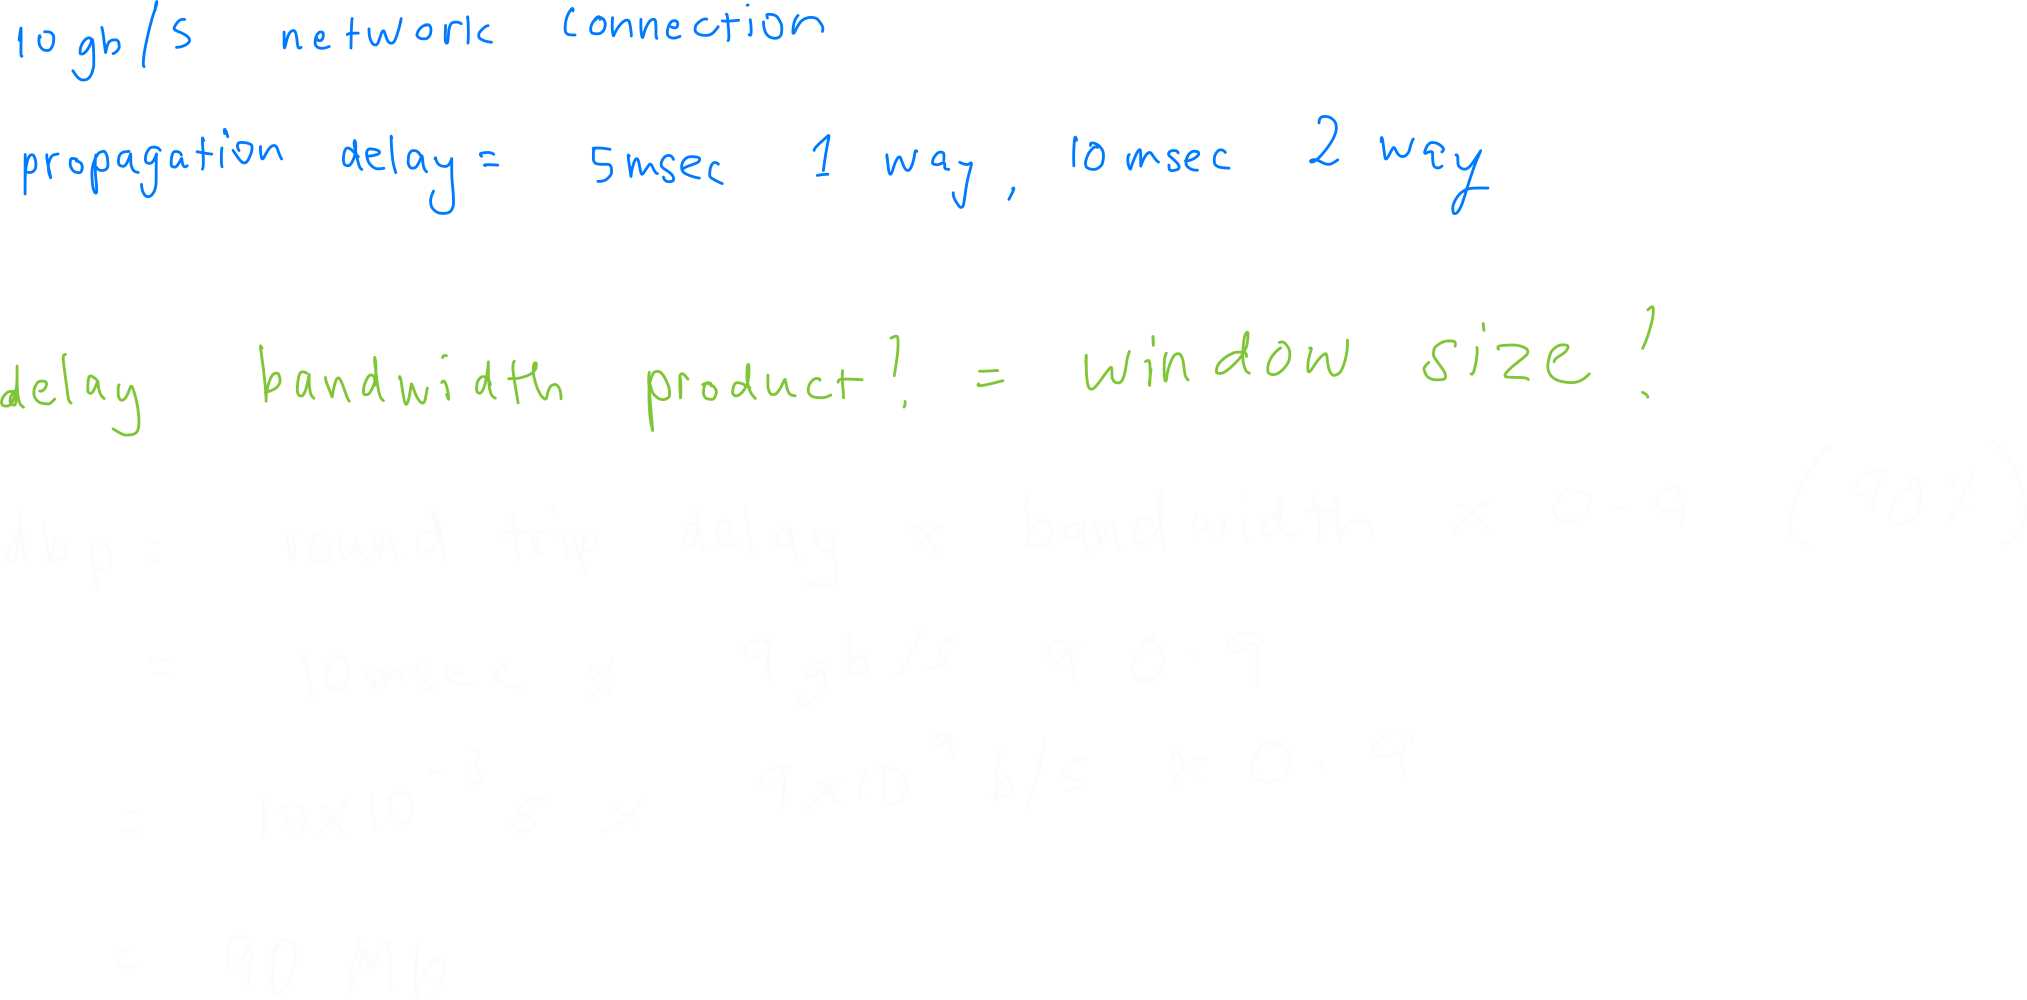 10 gb/s network connection
propagation delay = 5msec 1 way, 10 msec 2 way
delay bandwidth product? = window size?
dbp = round trip delay x bandwidth x 0.9 (90%)
= 10msec x 9gb/s x 0.9
= 10x10^-3 s x 9x10^9 b/s x 0.9
= 90 Mb